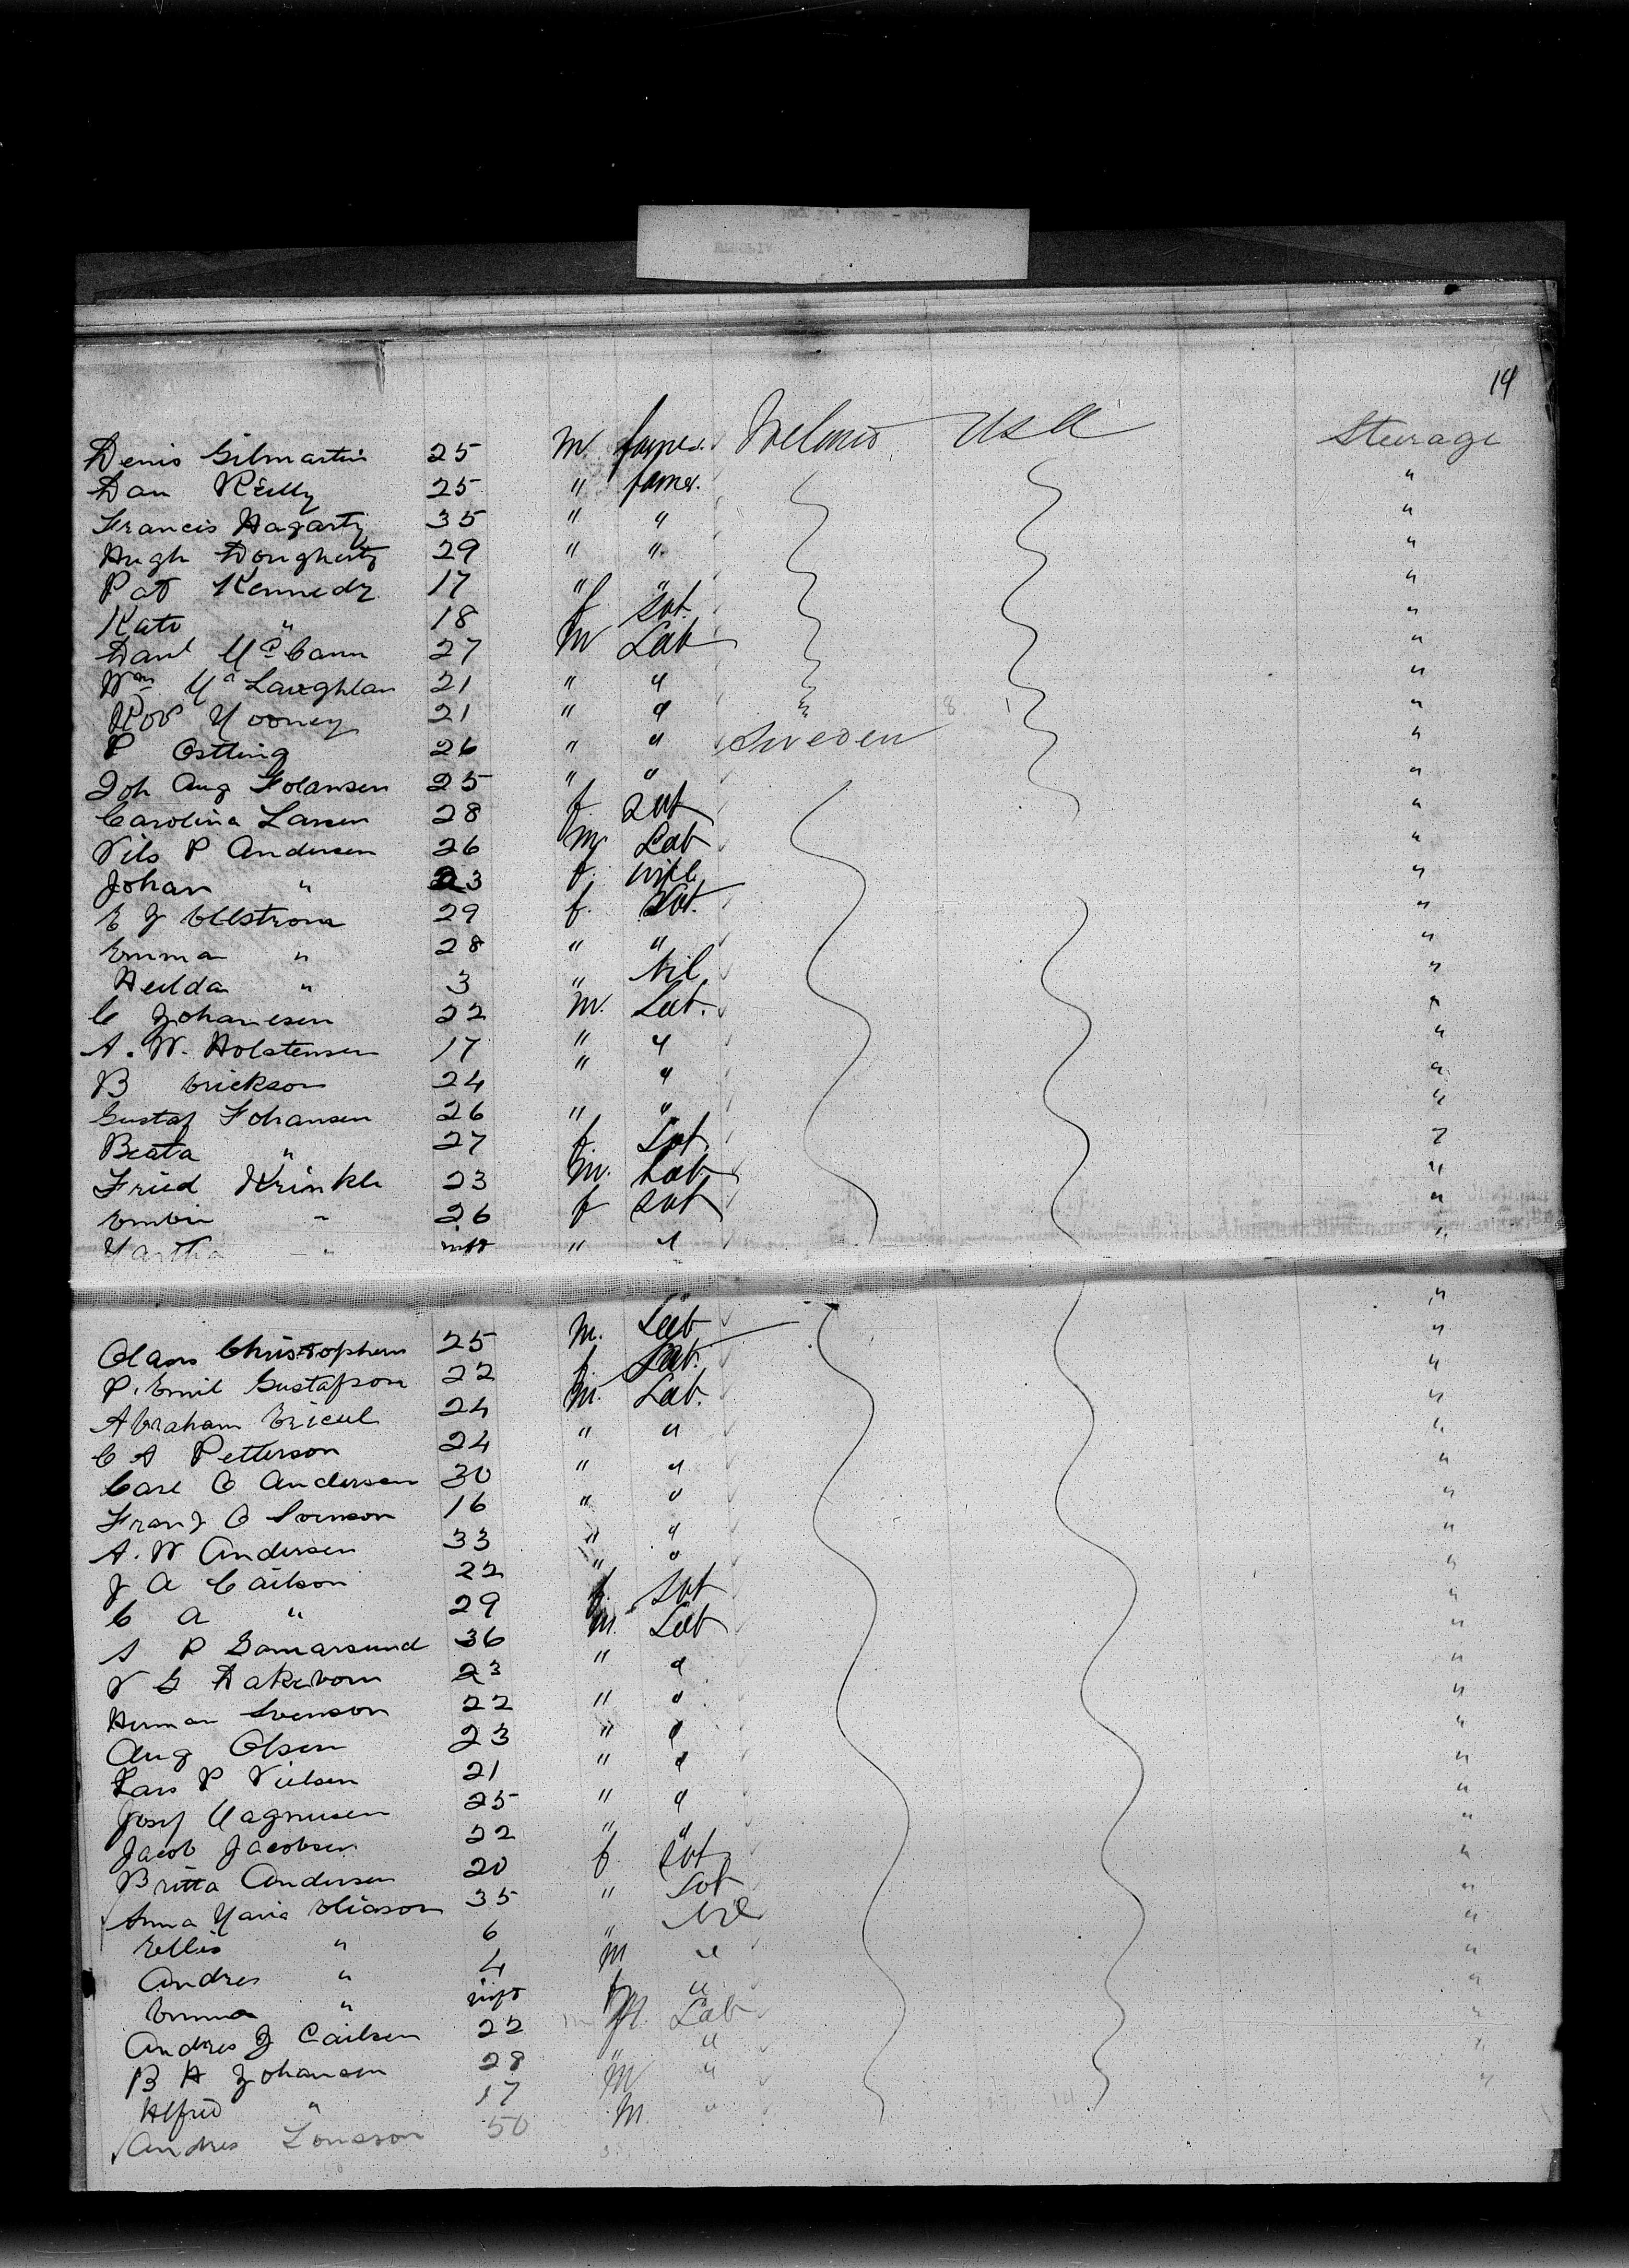 14
Denis Gilmartin 25 M farmer Ireland USA Steerage
Dan Reilly 25 " farmer. "
Francis Hagarty 35 " " "
Hugh Dougherty 29 " " "
Pat Kennedy 17 " " "
Kate " 18 f Svt. "
Danl McCann 27 M Lab "
Wm McLaughlan 21 " " "
Rob Mooney 21 " " " "
P Ostling 26 " " Sweden "
Joh Aug Johansen 25 " " "
Carolina Larsen 28 f Svt "
Nils P Andersen 26 M Lab "
Johan " 23 f. wife "
E J Ellstrom 29 f. Svt. "
Emma " 28 " " "
Hulda " 3 " Nil "
C Johanesen 22 M. Lab. "
A. W. Holstensen 17 " " "
B Erickson 24 " " "
Gustaf Johansen 26 " " "
Beata " 27 f. Svt. "
Fried Krinkle 23 M. Lab. "
" 26 f Svt "
Martha " inft " " "
Claus Christophers 25 M. Lab "
P. Emil Gustafson 22 f "
Abraham 24 M. Lab. "
C A Petterson 24 " " "
Carl O Andersen 30 " " "
Franz O Svenson 16 " " "
A. W Andersen 33 " " "
J A Carlson 22 " " "
C A " 29 f. Svt "
A P 36 M. Lab "
N G 23 " " "
Herman Svenson 22 " " "
Aug Olsen 23 " " "
Lars P Nielsen 21 " " "
Josef Magnusen 25 " " "
Jacob Jacobsen 22 " " "
Britta Andersen 20 f Svt "
Anna Maria Eliason 35 " Svt "
Ellis " 6 " Nil "
Andres " 4 M " "
Emma " inft f " "
Andres J Carlsen 22 M. Lab "
B H Johansen 28 " " "
Alfred " 17 M " "
Andres 50 M. "